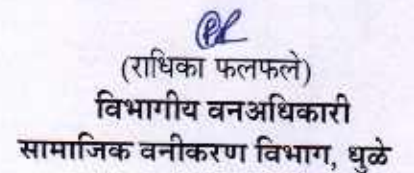 (राधिका फलफले)
विभागीय वनअधिकारी
सामाजिक वनीकरण विभाग, धुळे